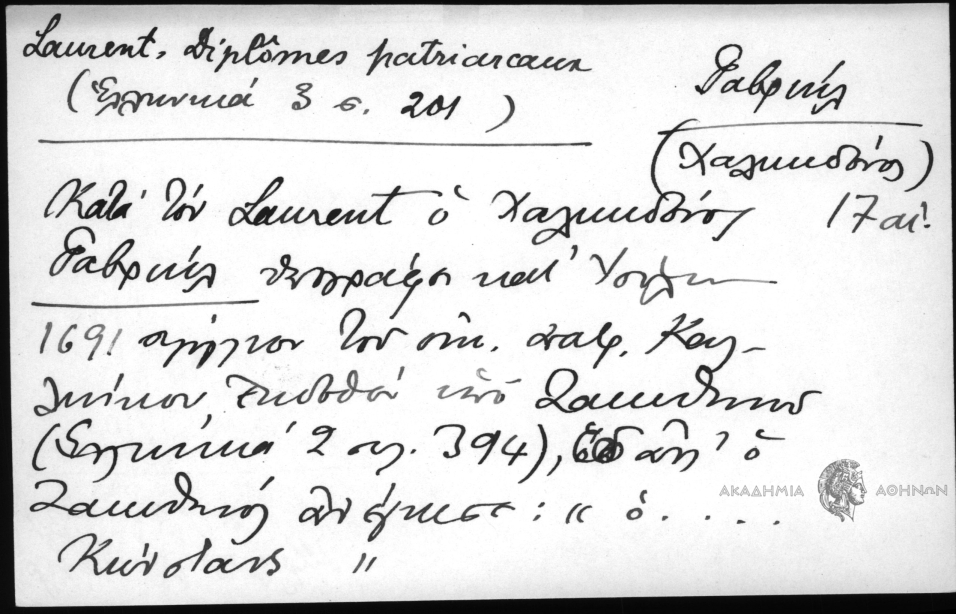 Laurent, Diplômes patriarcaux
(Ἑλληνικά 3 σ. 201)
Γαβριήλ
(Χαλκηδόνος)
17 αἰ.
Κατά τόν Laurent ὁ Χαλκηδόνος
Γαβριήλ ὑπογράφει κατ'
1691 σιγίλλιον τοῦ οἰκ. πατρ. Καλ-
λινίκου ἐκδοθέν ὑπό Ζακυθηνοῦ
(Ἑλληνικά 2 σελ. 394), ὁ
Ζακυθηνός ἀνέγνωσε : " ὁ . . . .
Κώνστας "
ΑΚΑΔΗΜΙΑ ΑΘΗΝΩΝ